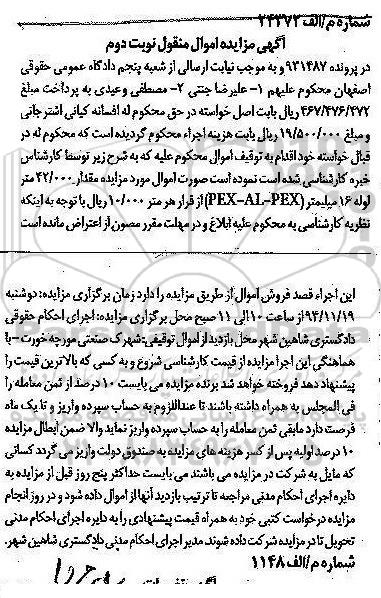 شماره م/الف ۲۴۳۷۲
آگهی مزایده اموال منقول نوبت دوم
در پرونده ۹۳۱۴۸۷ و به موجب نیابت ارسالی از شعبه پنجم دادگاه عمومی حقوقی
اصفهان محکوم علیهم ۱- علیرضا جنتی ۲- مصطفی وعیدی به پرداخت مبلغ
۴۶۷/۴۷۶/۴۷۲ ریال بابت اصل خواسته در حق محکوم له افسانه کیانی اشترجانی
و مبلغ ۱۹/۵۰۰/۰۰۰ ریال بابت هزینه اجراء محکوم گردیده است که محکوم له در
قبال خواسته خود اقدام به توقیف اموال محکوم علیه که به شرح زیر توسط کارشناس
خبره کارشناسی شده است نموده است صورت اموال مورد مزایده مقدار ۴۲/۰۰۰ متر
لوله ۱۶ میلیمتر (PEX-AL-PEX) از قرار هر متر ۱۰/۰۰۰ ریال با توجه به اینکه
نظریه کارشناسی به محکوم علیه ابلاغ و در مهلت مقرر مصون از اعتراض مانده است
این اجراء قصد فروش اموال از طریق مزایده را دارد زمان برگزاری مزایده: دوشنبه
۹۴/۱۱/۱۹ از ساعت ۱۰ الی ۱۱ صبح محل برگزاری مزایده: اجرای احکام حقوقی
دادگستری شاهین شهر محل بازدید از اموال توقیفی- شهرک صنعتی مورچه خورت – با
هماهنگی این اجرا مزایده از قیمت کارشناسی شروع و به کسی که بالاترین قیمت را
پیشنهاد دهد فروخته خواهد شد برنده مزایده می بایست ۱۰ درصد از ثمن معامله را
فی المجلس به همراه داشته باشند تا عنداللزوم به حساب سپرده واریز و تا یک ماه
فرصت دارد مابقی ثمن معامله را به حساب سپرده واریز نماید والا ضمن ابطال مزایده
۱۰ درصد اولیه پس از کسر هزینه های مزایده به صندوق دولت واریز می گردد کسانی
که مایل به شرکت در مزایده می باشند می بایست حداکثر پنج روز قبل از مزایده به
دایره اجرای احکام مدنی مراجعه تا ترتیب بازدید آنها از اموال داده شود و در روز انجام
مزایده درخواست کتبی خود به همراه قیمت پیشنهادی را به دایره اجرای احکام مدنی
تحویل تا در مزایده شرکت داده شوند مدیر اجرای احکام مدنی دادگستری شاهین شهر.
شماره م/الف ۱۱۴۸